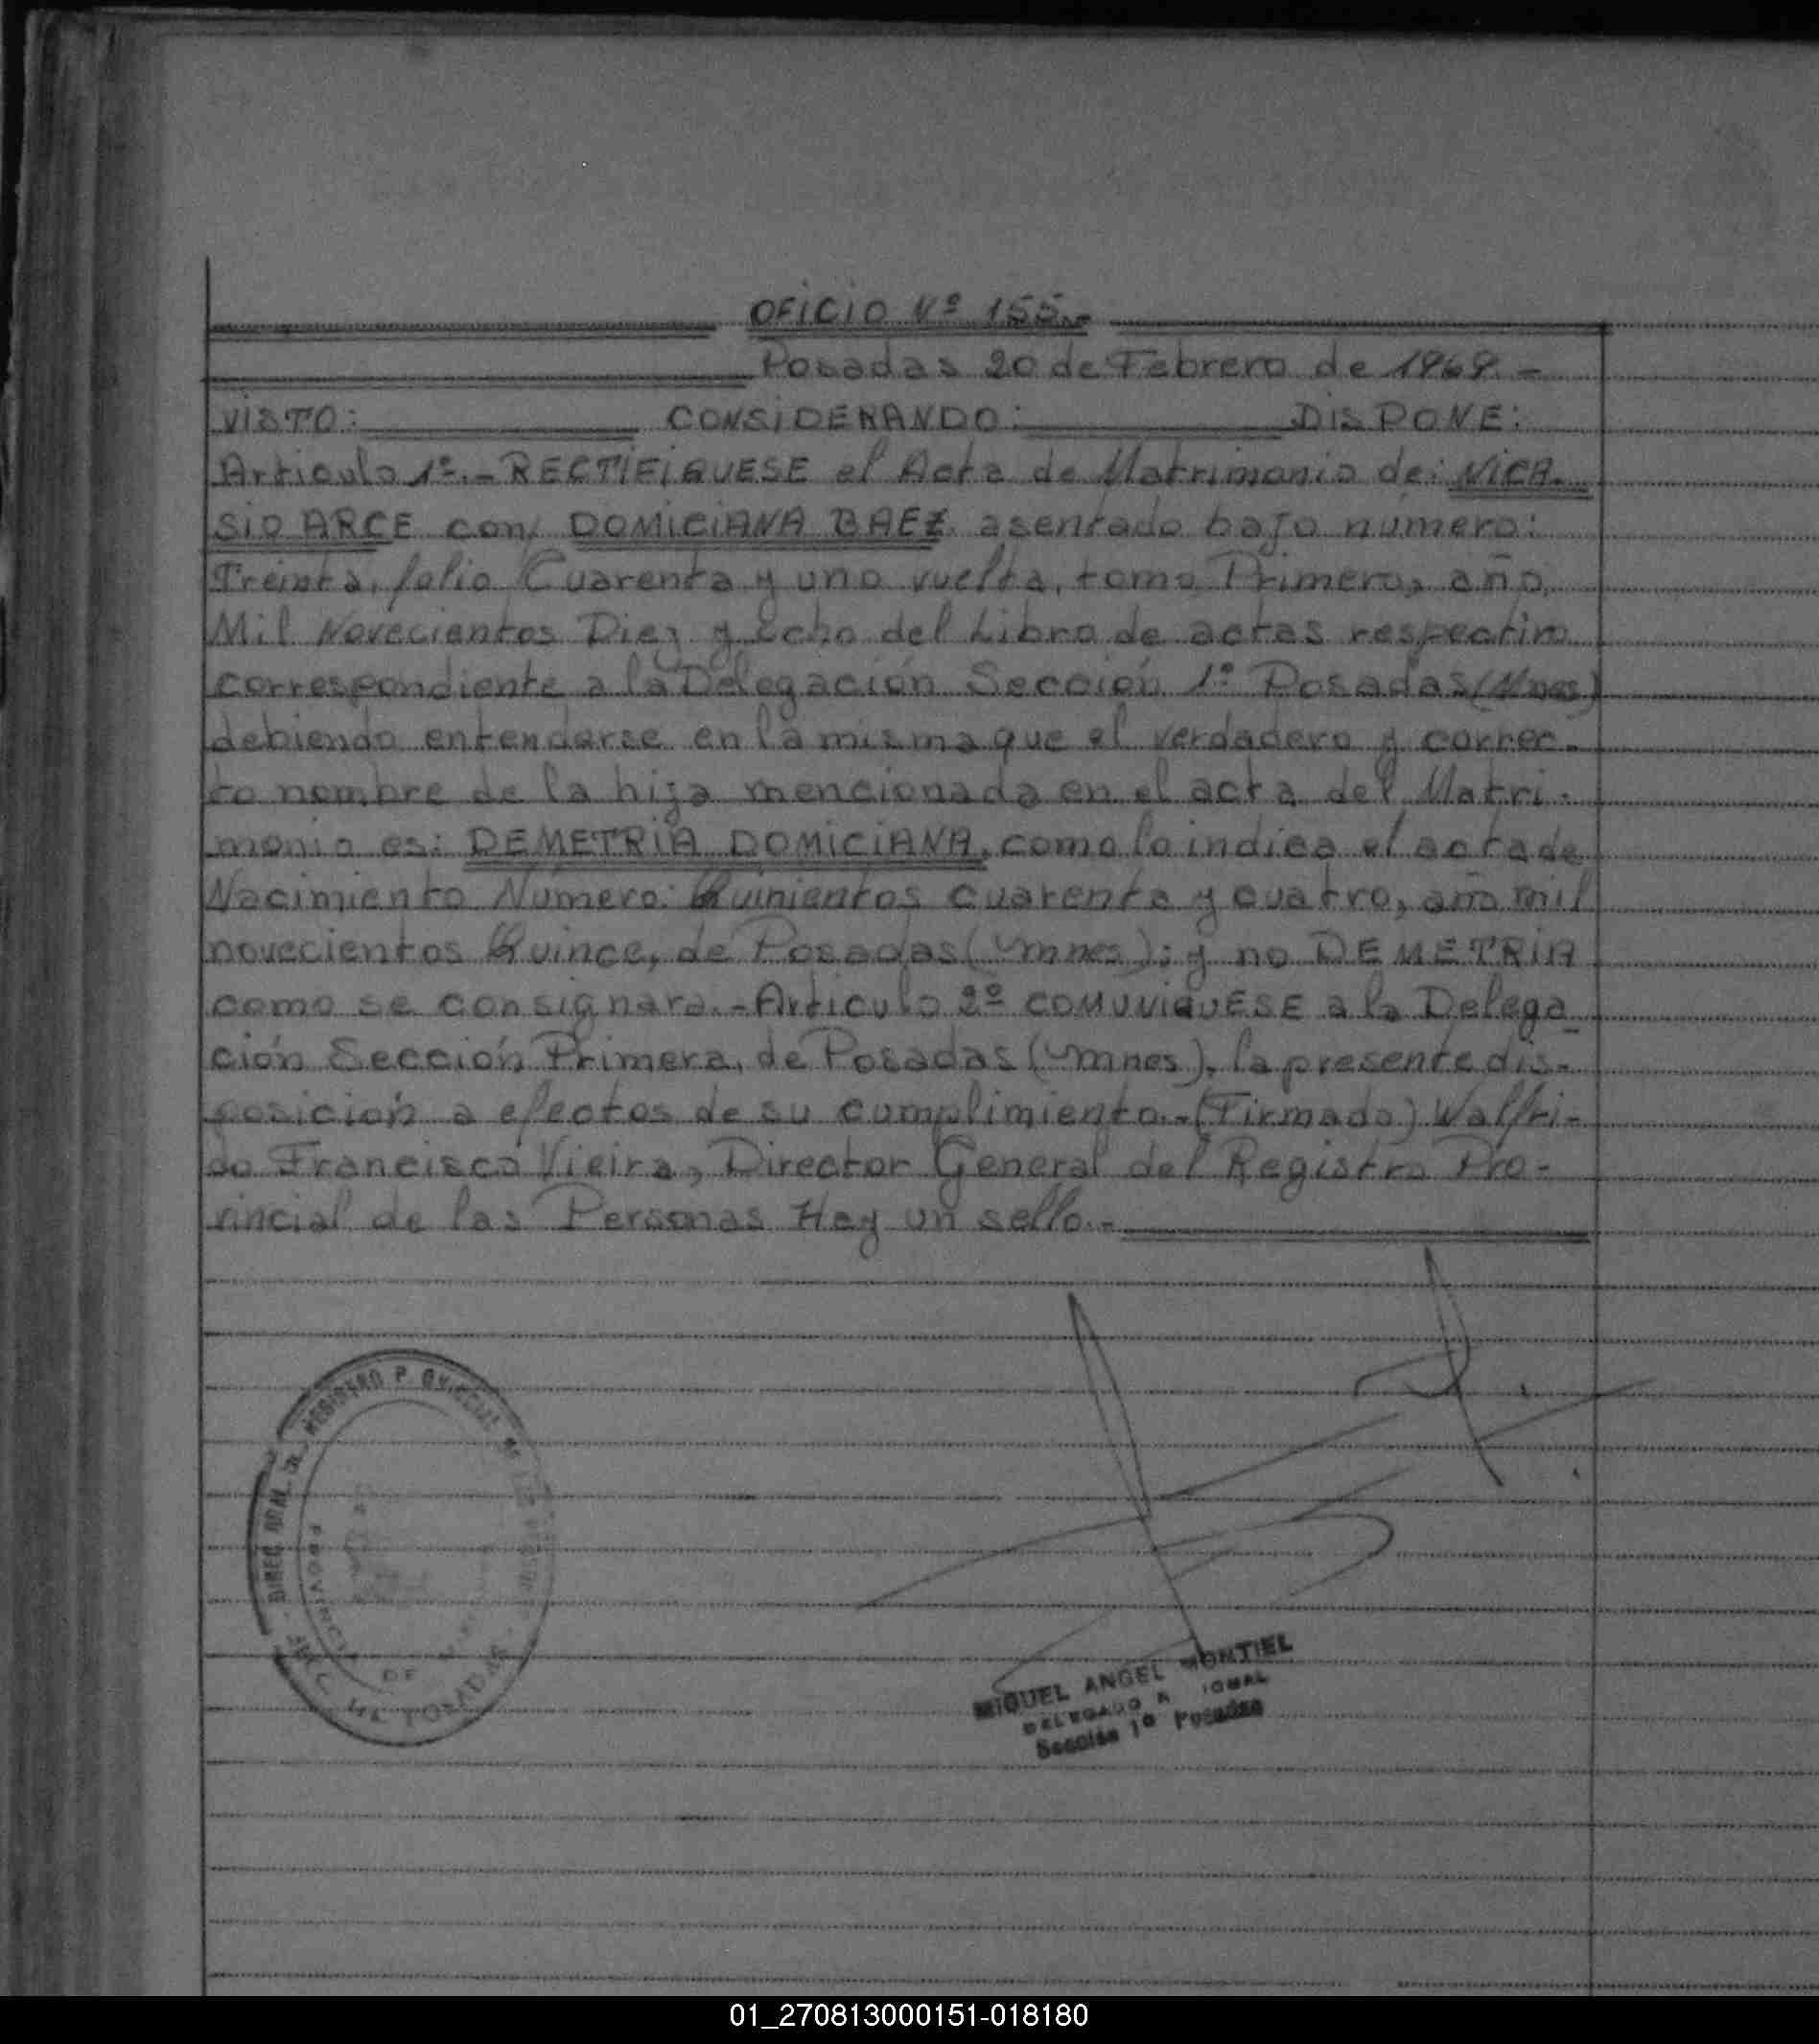 OFICIO Nº 155.-
Posadas 20 de Febrero de 1969.-
VISTO: CONSIDERANDO: DISPONE:
Articulo 1º.- RECTIFIQUESE el Acta de Matrimonio de: NICA-
SIO ARCE con DOMICIANA BAEZ asentado bajo número:
Treinta, folio Cuarenta y uno vuelta, tomo Primero, año
Mil Novecientos Diez y Ocho del Libro de actas respectivo
correspondiente a la Delegación Sección 1º Posadas (Mnes)
debiendo entenderse en la misma que el verdadero y correc-
to nombre de la hija mencionada en el acta del Matri-
monio es: DEMETRIA DOMICIANA, como lo indica el acta de
Nacimiento Número: Quinientos cuarenta y cuatro, año mil
novecientos Quince, de Posadas (Mnes); y no DEMETRIA
como se consignara.- Articulo 2º COMUNIQUESE a la Delega-
ción Sección Primera, de Posadas (Mnes), la presente dis-
posición a efectos de su cumplimiento.- (Firmado) Walfri-
do Francisco Vieira, Director General del Registro Pro-
vincial de las Personas Hay un sello.-
DIREC. GRAL. DEL REGISTRO P OVINCIAL DE LAS
PROVINCIA DE
SECC POSADAS
MIGUEL ANGEL MONTIEL
DELEGADO R IONAL
Sección 1º Posadas
01_270813000151-018180